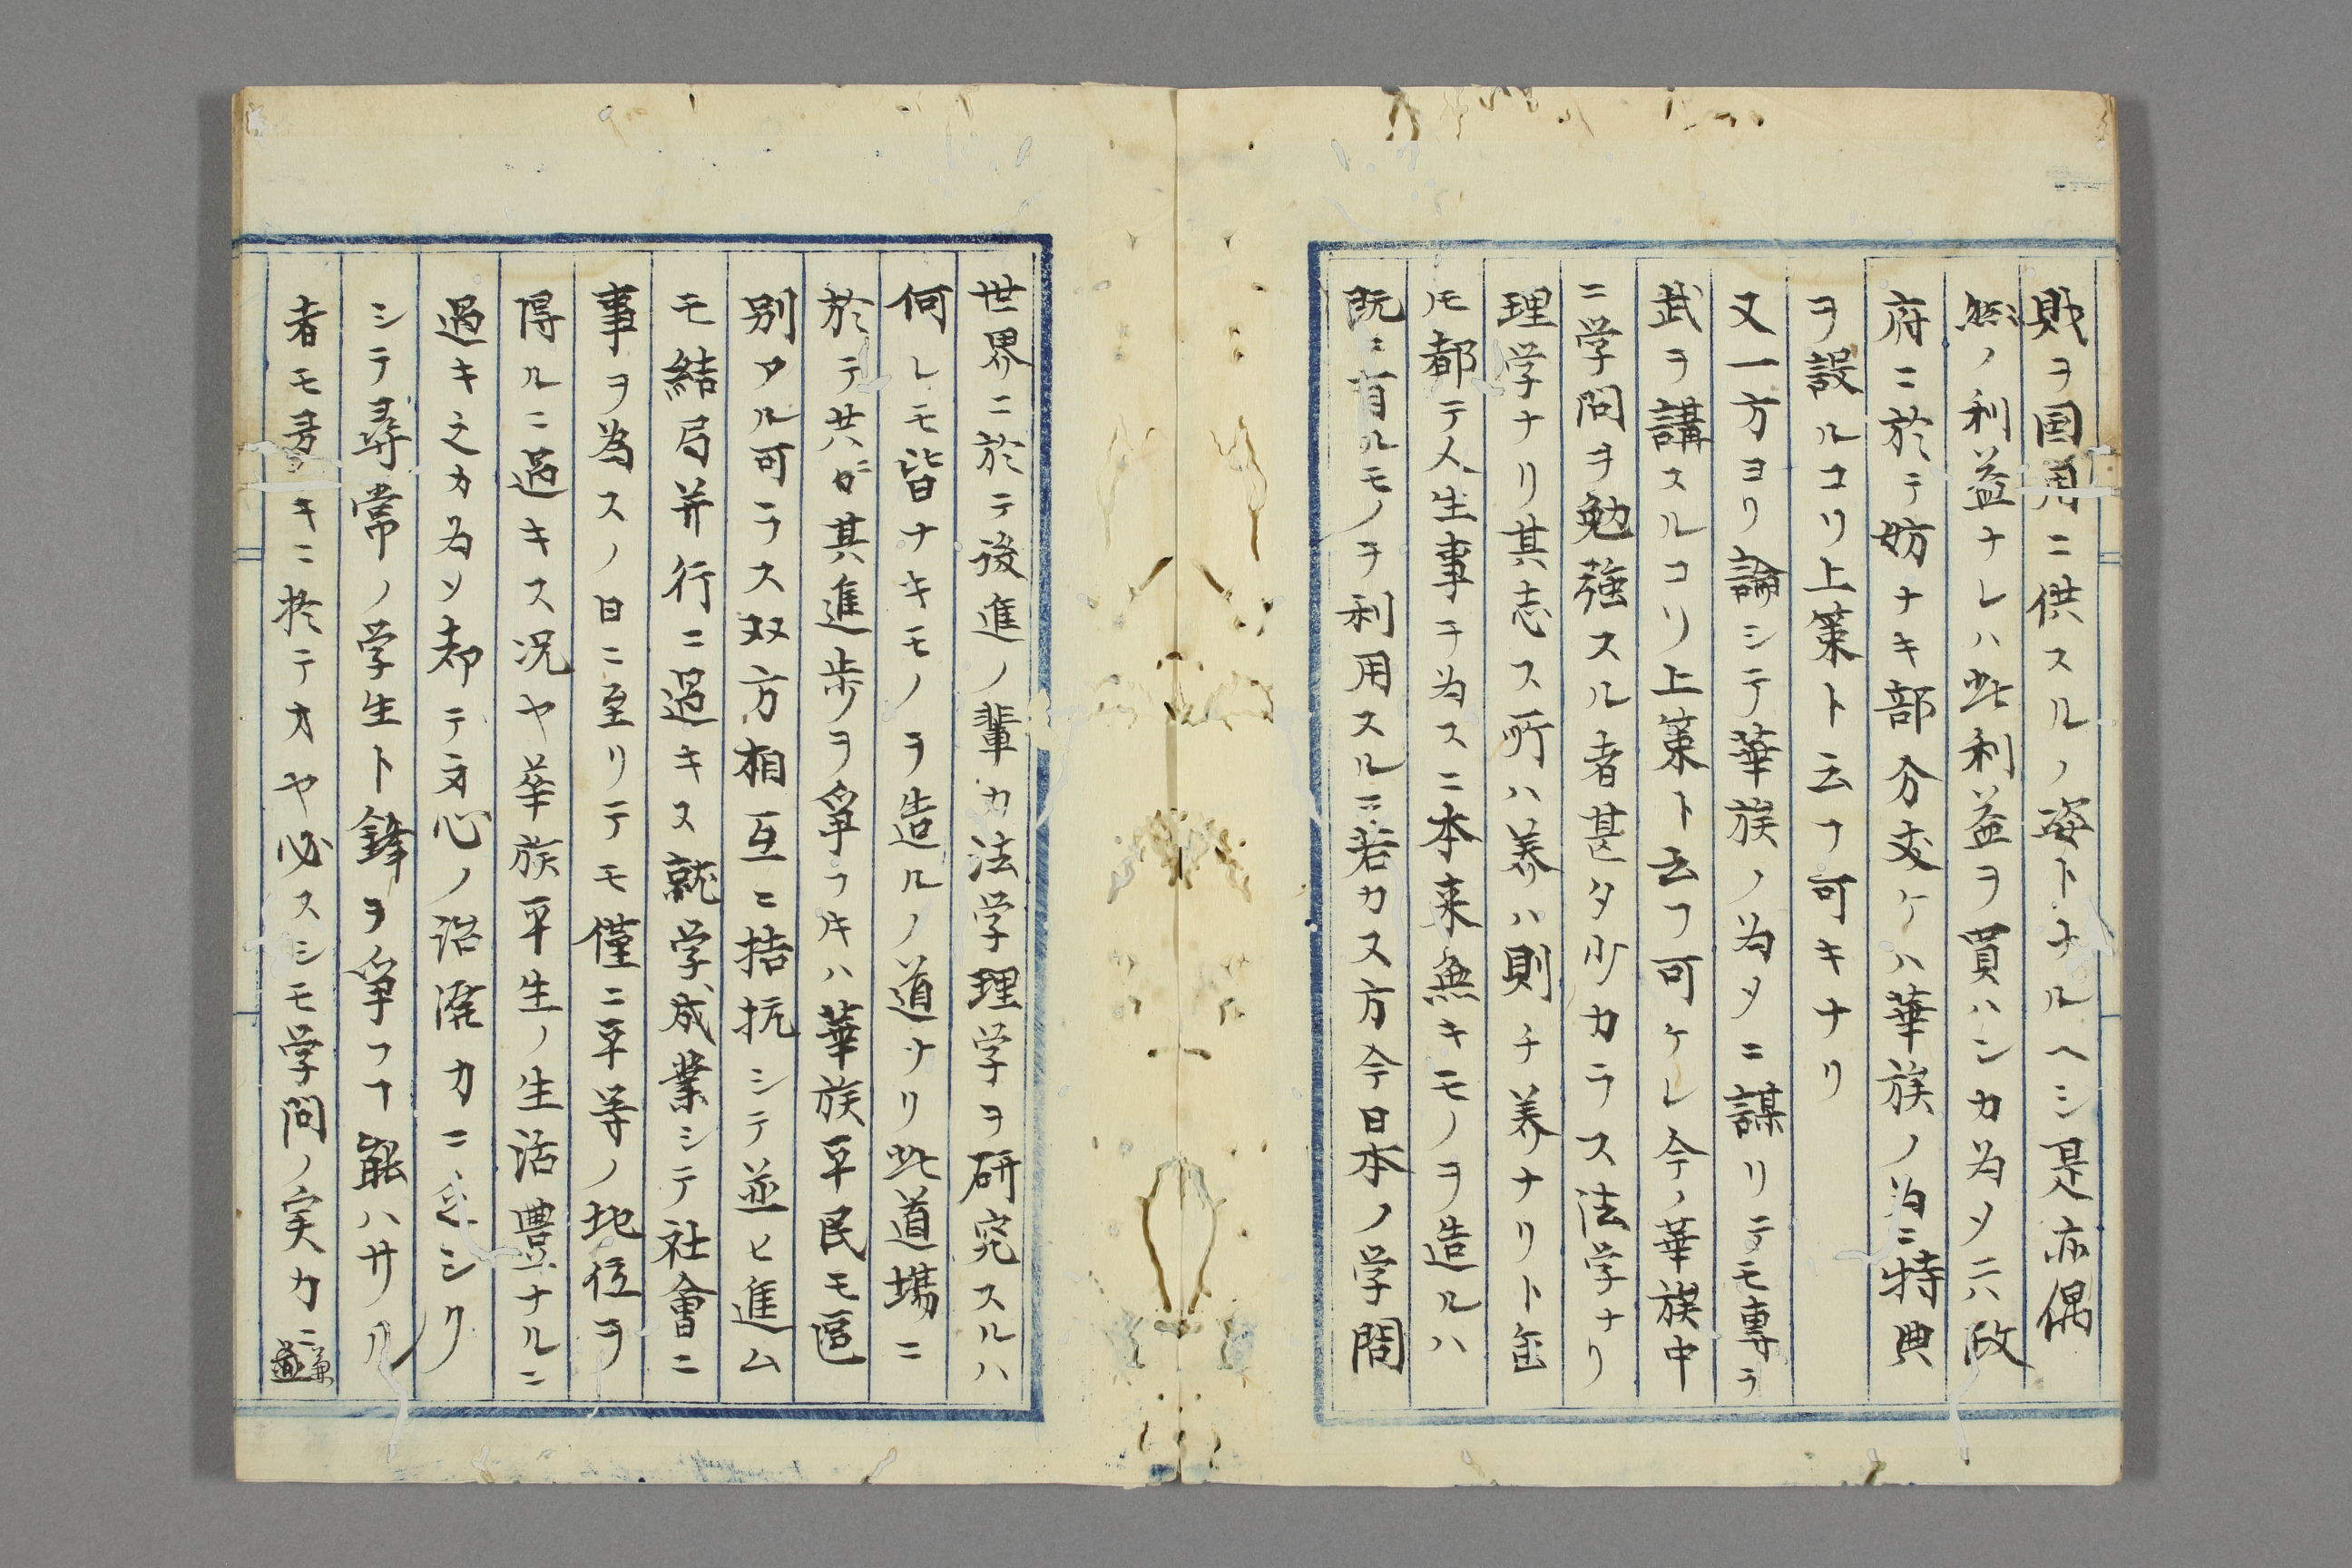 財ヲ国用ニ供スルノ姿トナルヘシ是亦偶
然ノ利益ナレハ此利益ヲ買ハンカ為メニハ政
府ニ於テ妨ナキ部分丈ケハ華族ノ為ニ特典
ヲ設ルコソ上策ト云フ可キナリ
又一方ヨリ論シテ華族ノ為メニ謀リテモ専ラ
武ヲ講スルコソ上策ト云フ可ケレ今ノ華族中
ニ学問ヲ勉強スル者甚タ少カラス法学ナリ
理学ナリ其志ス所ハ美ハ則チ美ナリト雖
ルモ都テ人生事ヲ為スニ本来無キモノヲ造ルハ
既ニ有ルモノヲ利用スルニ若カス方今日本ノ学問
世界ニ於テ後進ノ輩カ法学理学ヲ研究スルハ
何レモ皆ナキモノヲ造ルノ道ナリ此道場ニ
於テ共ガ其進歩ヲ争フ片ハ華族平民モ區
別アル可ラス双方相互ニ拮抗シテ並ヒ進ム
モ結局并行ニ過キス就学成業シテ社會ニ
事ヲ為スノ日ニ至リテモ僅ニ平等ノ地位ヲ
得ルニ過キス況ヤ華族平生ノ生活豊ナルニ
過キ之カ為メ却テ文心ノ活溌力ニ乏シク
シテ尋常ノ学生ト鋒ヲ争フヿ能ハサル
者モ多キニ於テオヤ必スシモ学問ノ実力ニ